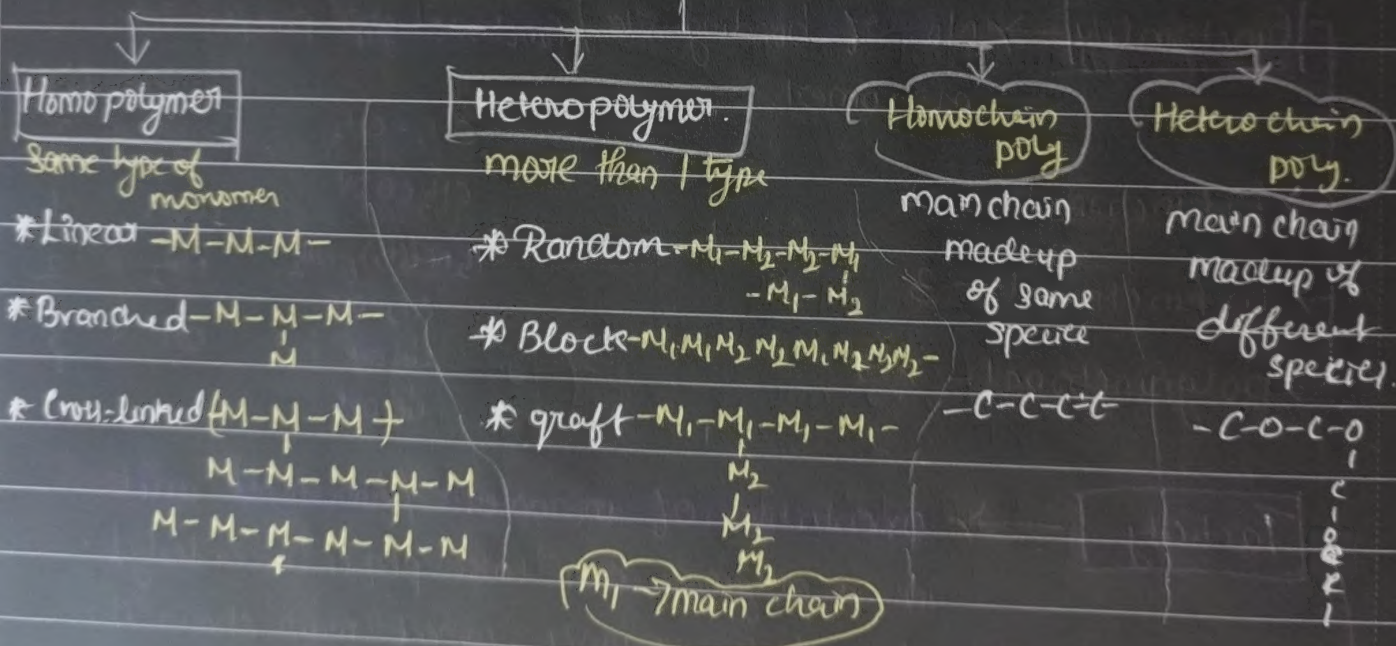 Homopolymer
Same type of
monomer
*Linear -M-M-M-
*Branched-M-M-M-
M
*Cross-linked(M-M-M+
M-M-M-M-M
M-M-M-M-M-M
Heteropolymer.
more than 1 type
*Random-M1-M2-M2-M1
-M1-M2
*Block-M1M1M2M2M1M2M2M2-
*graft-M1-M1-M1-M1-
M2
M2
M2
M1→main chain
Homochain
poly
main chain
madeup
of same
specie
-C-C-C-C-
Hetero chain
poly.
main chain
madup of
different
species.
-C-O-C-O
C
O